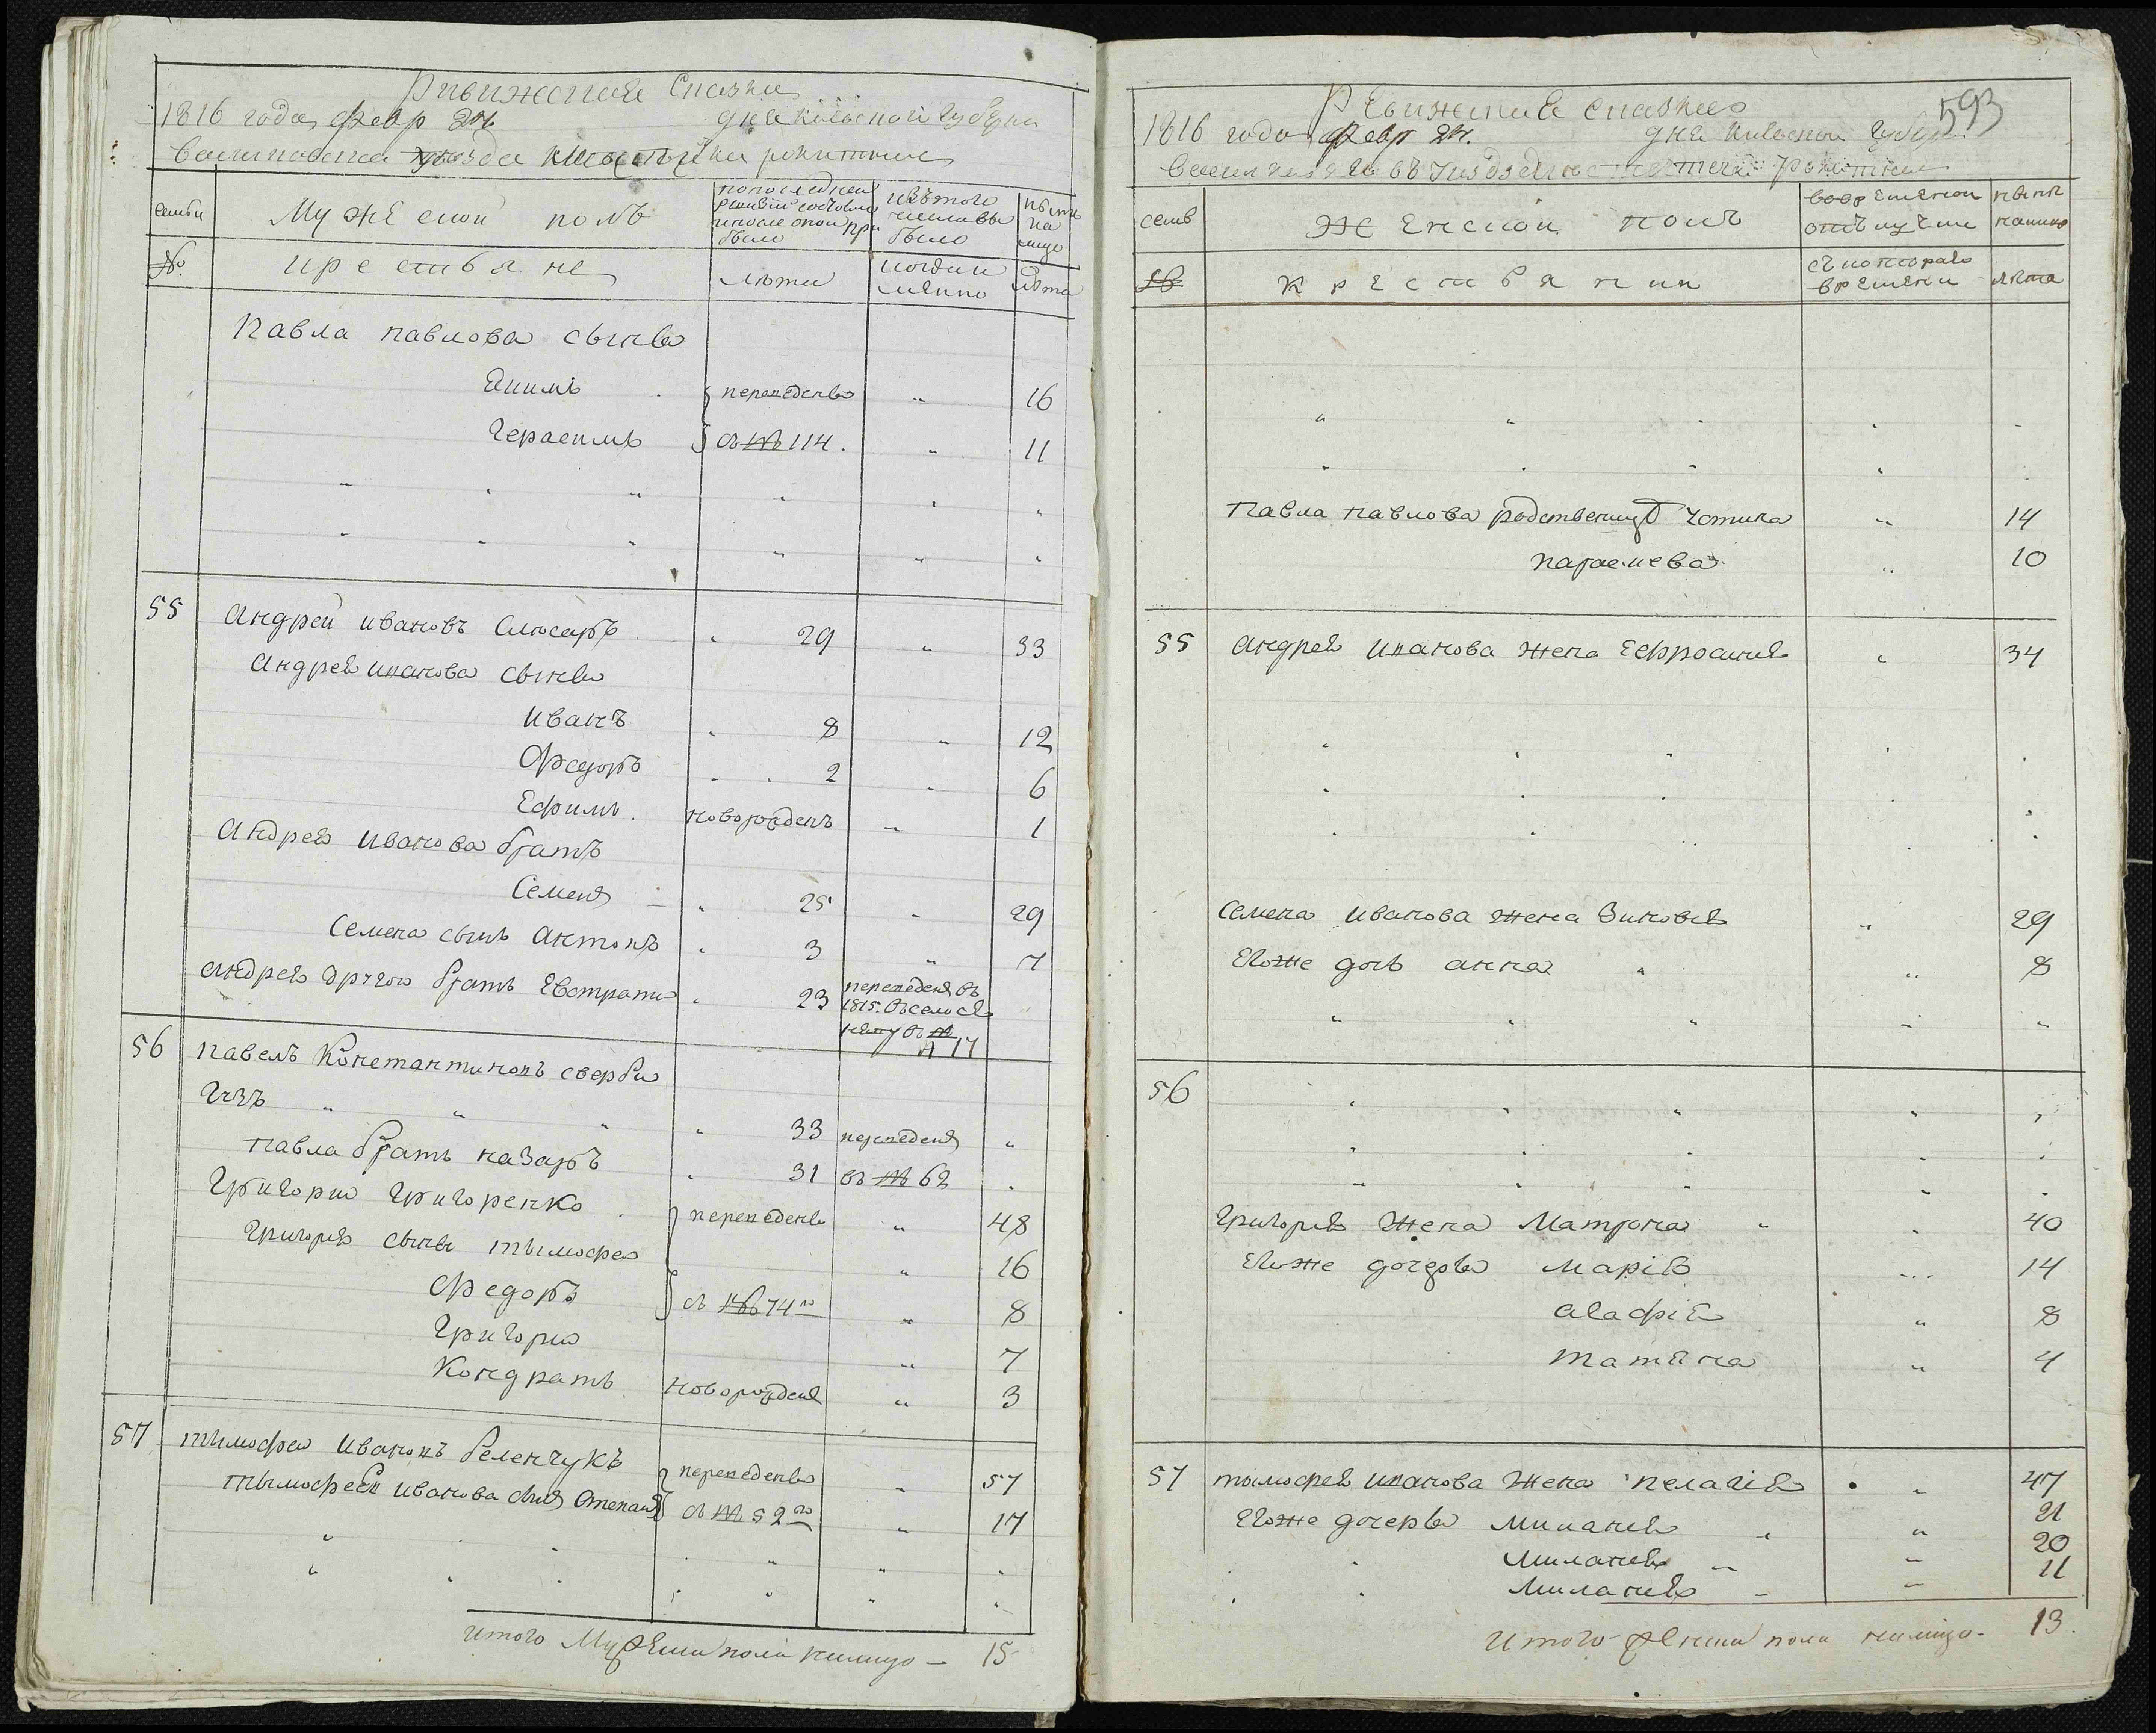 Ривижская Сказка
1816 года февр 24 дня Киевской Губерни
Василковска уезда
семьи
Мужескои полъ
по последнеи ревизіи состояло и после онои при было
изъ того числа вы было
ныне на лицо
№
крестьяне
лѣты
когда и менно
лѣта
Павла павлова сыны
Якимъ переведены " 16
Герасимъ съ № 114. " 11
55 Андреи ивановъ Слюсаръ 29 " 33
Андрея иванова сыны
иванъ 8 " 12
Федоръ 2 " 6
Ефимъ новорожденъ " 1
Андрея иванова братъ
Семенъ 25 " 29
Семена сынъ антонъ 3 " 7
андрея другои братъ Евстрати 23 переведенъ въ 1815. въ село
въ № 17
56 павелъ Константиновъ сверби
гузъ " " " 33 переведены "
павла братъ назаръ 31 въ № 62
Григории Григоренко переведены " 48
Григорія сыны тымофеи " 16
Федоръ съ № 74го " 8
Григории " 7
Кондратъ новорожденъ " 3
57 тымофеи ивановъ беленчукъ переведены " 57
тымофея иванова сынъ степанъ съ № 52го " 17
итого Мужеска пола налицо — 15
593
Ревижская сказка
1816 года февр 24. дня Киевскои Губерн
семьи
Женскои полъ
во временои отлучке
ныне налицо
№
крестьянки
съ котораго времени
лѣта
Павла павлова родственицы Устина " 14
параскева " 10
55 андрея иванова жена Ефросинія " 34
Семена иванова жена Зиновія " 29
Егоже дочь анна " 8
56
Григорія жена Матрона " 40
Егоже дочеры Марія 14
агафія " 8
татяна " 4
57 тымофея иванова жена пелагія " 47
Егоже дочеры миланія " 21
миланія " 20
миланія " 11
итого женска пола налицо — 13.